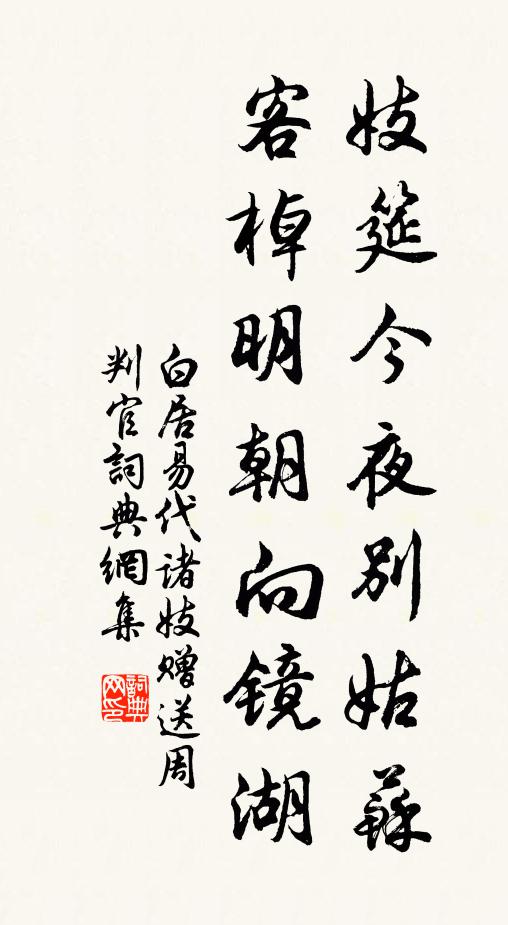 妓筵今夜別姑蘇
客棹明朝向鏡湖
白居易代诸妓赠送周
判官詞典網集
詞典网印